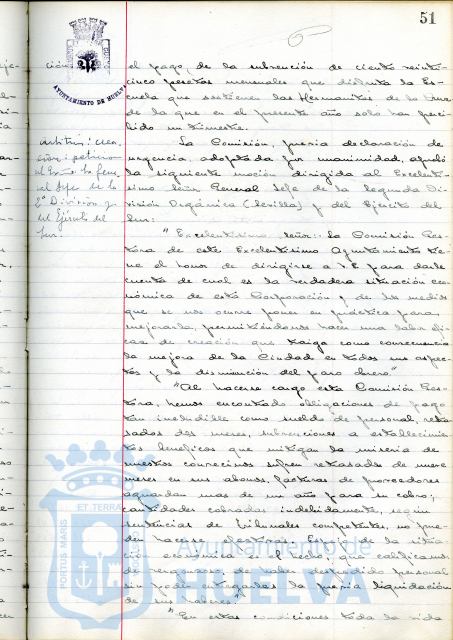 51
AYUNTAMIENTO DE HUELVA
el pago, de la subvención de ciento veinti-
cinco pesetas mensuales que disfruta la Es-
cuela que sostienen las Hermanitas de la Cruz
de la que en el presente año solo han perci-
bido un trimestre.
La Comisión, previa declaración de
urgencia, adoptada por unanimidad, aprobó
la siguiente moción dirigida al Excelentí-
simo Señor General Jefe de la Segunda Di-
visión Orgánica (Sevilla) y del Ejército del
Sur:
"Excelentísimo Señor: la Comisión Ges-
tora de este Excelentísimo Ayuntamiento tie-
ne el honor de dirigirse a V.E. para darle
cuenta de cual es la verdadera situación eco-
nómica de esta Corporación y de los medios
que se nos ocurre poner en práctica para
mejorarla, permitiéndonos hacer una labor efi-
caz de creación que traiga como consecuencia
la mejora de la Ciudad en todos sus aspec-
tos y la disminución del paro obrero."
"Al hacerse cargo esta Comisión Ges-
tora, hemos encontrado obligaciones de pago
tan ineludible como sueldo de personal, retra-
sados dos meses, subvenciones a establecimien-
tos benéficos que mitigan la miseria de
nuestros convecinos sufren retrasados de nueve
meses en sus abonos, facturas de proveedores
aguardan mas de un año para su cobro;
cantidades cobradas indebidamente, según
sentencias de Tribunales competentes, no pue-
den hacerse efectivas. Espejo de la situa-
ción económica es el hecho, que calificamos
de vergonzoso, de haber despedido personal
sin poder entregarles la propia liquidación
de sus haberes."
"En estas condiciones toda la vida
PORTUS MARIS ET TERRAE
Ayuntamiento de
HUELVA